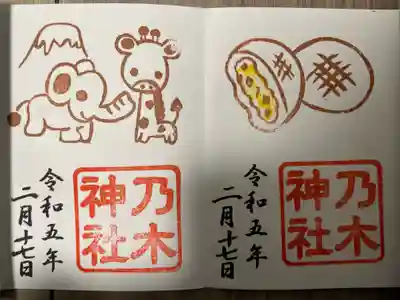 令和五年
二月十七日
乃木
神社
令和五年
二月十七日
乃木
神社